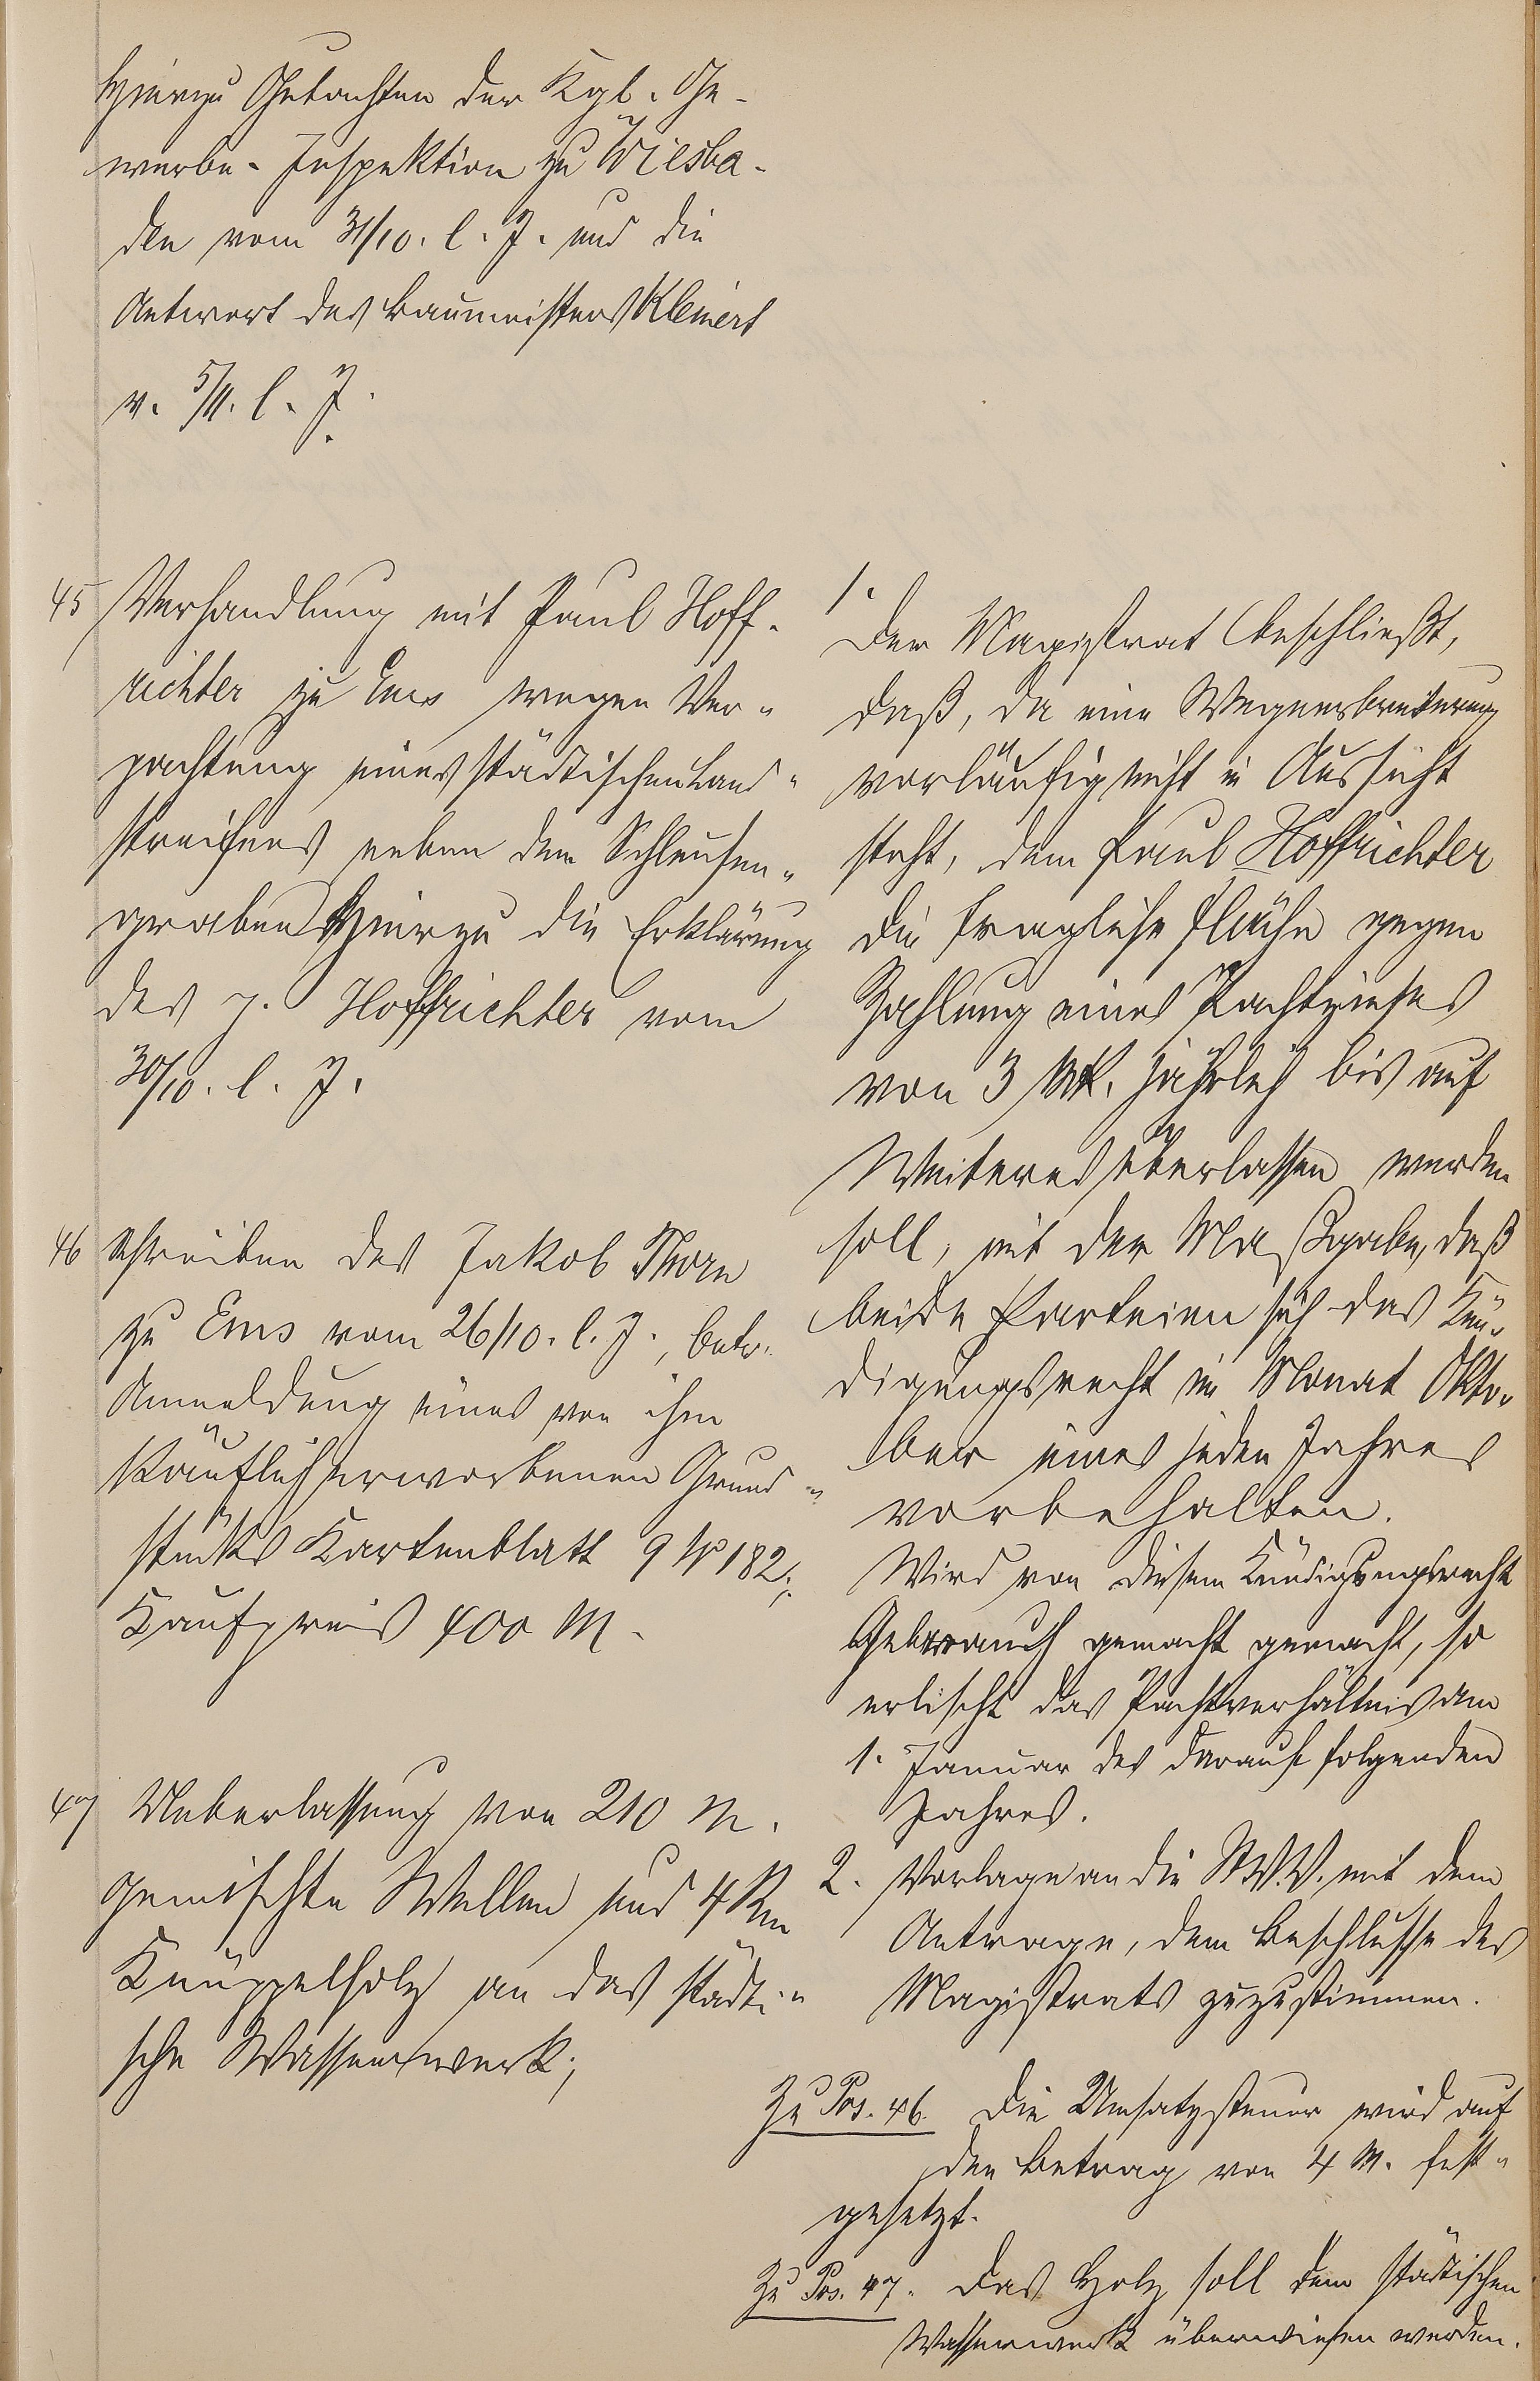 Hierzu Gutachten der Kgl. Ge-
werbe-Inspektion zu Wiesba-
den vom 31/10. l. J. und die
Antwort des Baumeisters Kleinert
v. 5/11. l. J.
45 Verhandlung mit Paul Hoff-
richter zu Ems wegen Ver-
pachtung eines städtischen Land-
streifens neben dem Schleusen-
graben. Hierzu die Erklärung
des p. Hoffrichter vom
30/10. l. J.
46 Schreiben des Jakob Thorn
zu Ems vom 26/10. l. J., betr.
Anmeldung eines von ihm
käuflich erworbenen Grund-
stücks Kartenblatt 9 No 182;
Kaufpreis 400 M.
47 Ueberlassung von 210 M.
gemischte Wellen und 4 Rm
Knüppelholz an das städti-
sche Wasserwerk;
1.
Der Magistrat beschließt,
daß, da eine Wegeverbreiterung
vorläufig nicht in Aussicht
steht, dem Paul Hoffrichter
die fragliche Fläche gegen
Zahlung eines Pachtzinses
von 3 Mk. jährlich bis auf
Weiteres überlassen werden
soll, mit der Maßgabe, daß
beide Parteien sich das Kün-
digungsrecht im Monat Okto-
ber eines jeden Jahres
vorbehalten.
Wird von diesem Kündigungsrecht
Gebrauch gemacht gemacht, so
erlischt das Pachtverhältnis am
1. Januar des darauf folgenden
Jahres.
2. Vorlage an die St.V.V. mit dem
Antrage, dem Beschlusse des
Magistrats zuzustimmen.
Zu Pos. 46. Die Umsatzsteuer wird auf
den Betrag von 4 M. fest-
gesetzt.
Zu Pos. 47. Das Holz soll dem städtischen
Wasserwerk überwiesen werden.